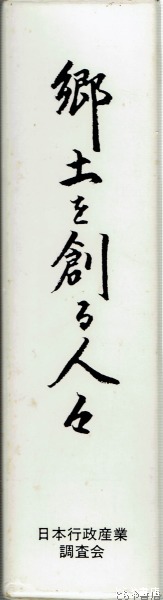 郷土を創る人々
日本行政産業
調査会